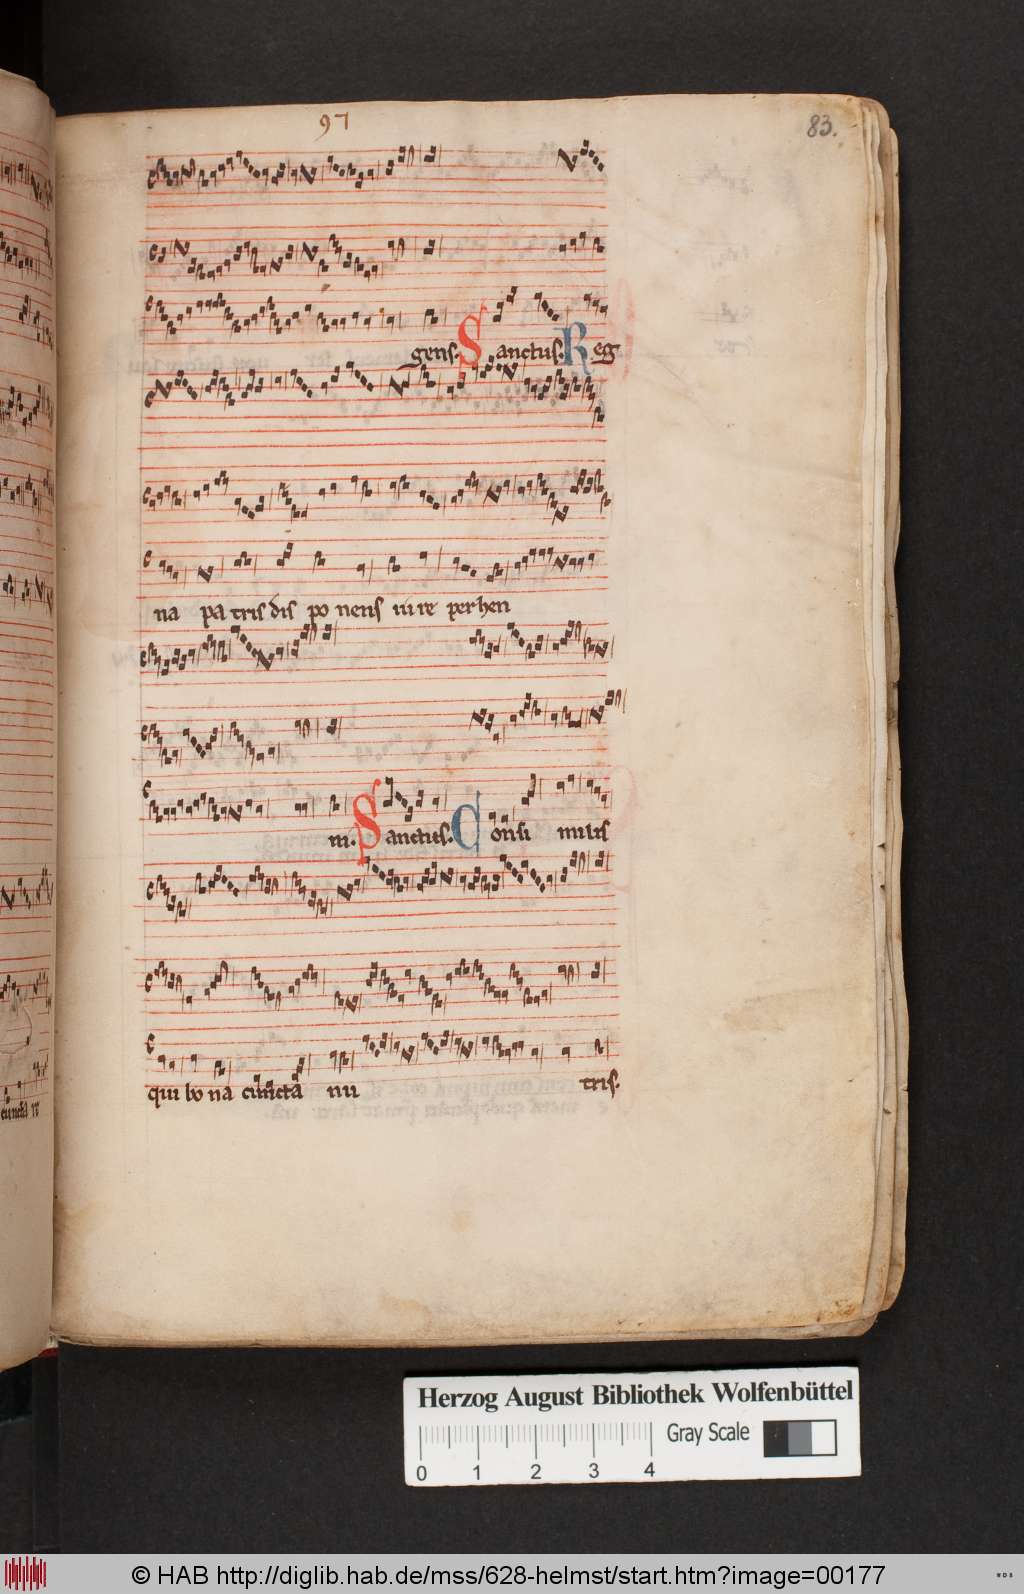 97
83.
gens. Sanctus. Reg
na pa tris dis po nens iu re per hen
ni. Sanctus. Consi milis
qui bo na cuncta nu tris.
Herzog August Bibliothek Wolfenbüttel
Gray Scale
0 1 2 3 4
© HAB http://diglib.hab.de/mss/628-helmst/start.htm?image=00177